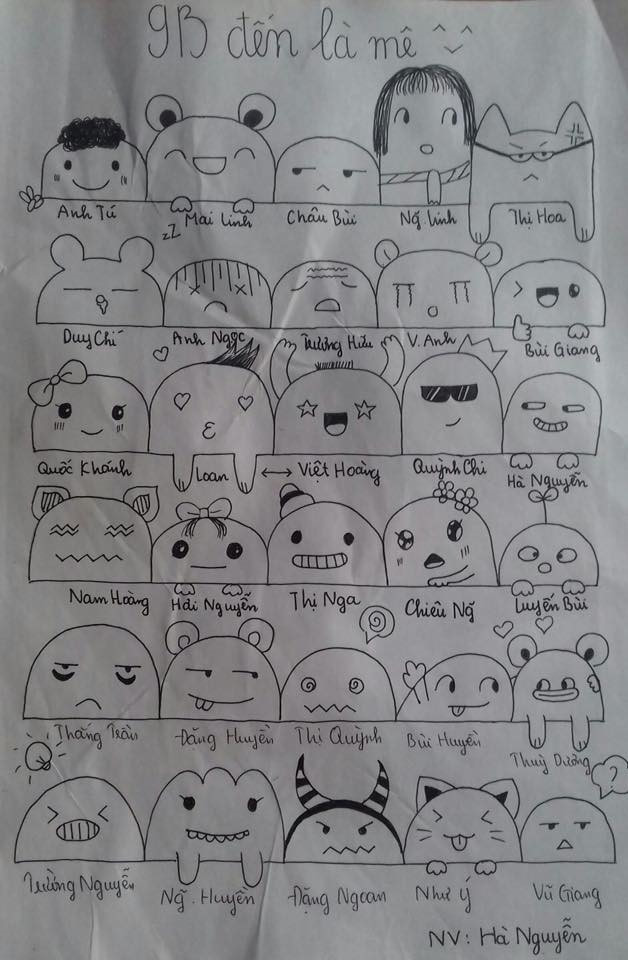 9B đến là mê
Anh Tú Mai Linh Châu Bùi Ng̃ Linh Thị Hoa
zZ
Duy Chí Anh Ngọc Trương Hữu V. Anh Bùi Giang
Quốc Khánh Loan Việt Hoàng Quỳnh Chi Hà Nguyễn
Nam Hoàng Hải Nguyễn Thị Nga Chiêu Ng̃ Luyến Bùi
Thắng Trần Đặng Huyền Thị Quỳnh Bùi Huyền Thuỳ Dương
?
Trường Nguyễn Ng̃. Huyền Đặng Ngoan Như Ý Vũ Giang
NV: Hà Nguyễn